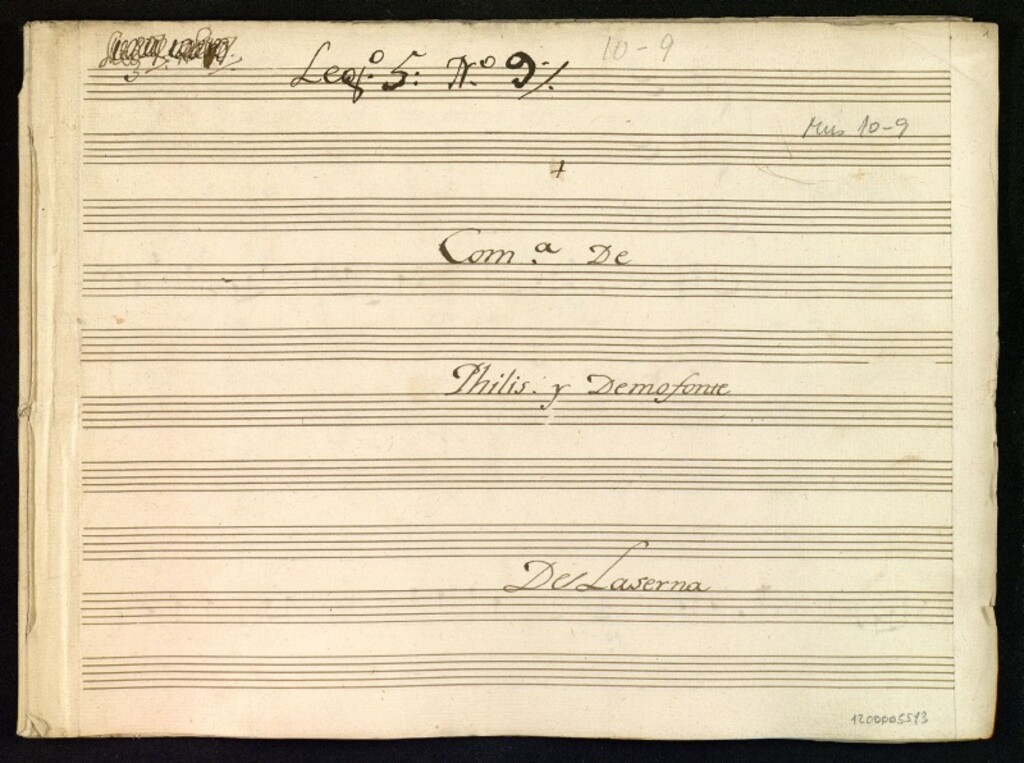 Leg.º 5: N.º 9./.
10-9
Mus 10-9
+
Com.ª De
Philis. y Demofonte
De Laserna
1200005513